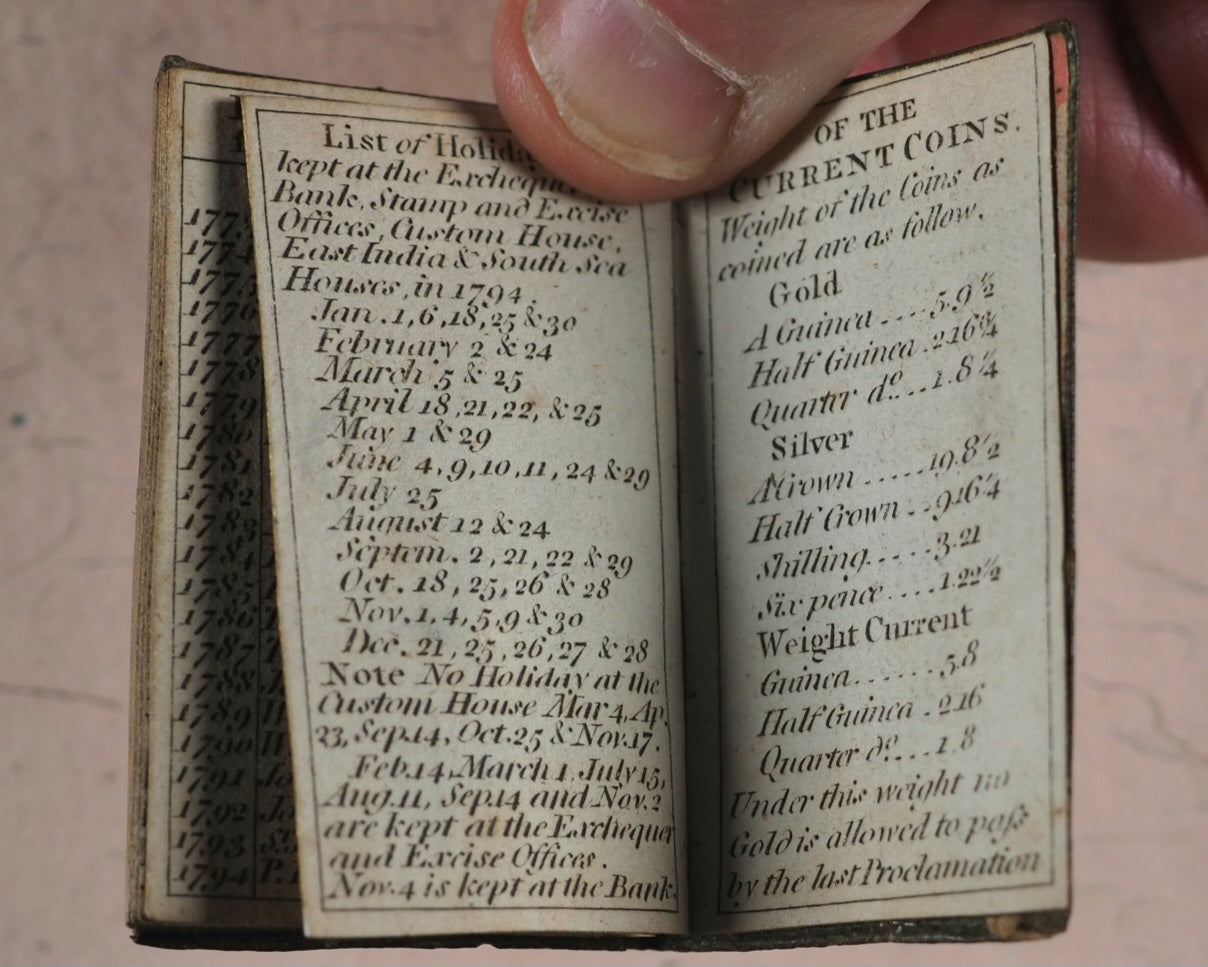 1773
1774
1775
1776
1777
1778
1779
1780
1781
1782
1783
1784
1785
1786
1787
1788
1789
1790
1791
1792
1793
1794
List of
kept at the
Bank, Stamp and Excise
Offices, Custom House,
East India & South Sea
Houses, in 1794.
Jan. 1, 6, 18, 25 & 30
February 2 & 24
March 5 & 25
April 18, 21, 22, & 25
May 1 & 29
June 4, 9, 10, 11, 24 & 29
July 25
August 12 & 24
Septem. 2, 21, 22 & 29
Oct. 18, 25, 26 & 28
Nov. 1, 4, 5, 9 & 30
Dec. 21, 25, 26, 27 & 28
Note No Holiday at the
Custom House Mar 4, Ap.
23, Sep.14, Oct.25 & Nov.17.
Feb.14, March 1, July 15,
Aug.11, Sep.14 and Nov.2
are kept at the Exchequer
and Excise Offices.
Nov. 4 is kept at the Bank.
OF THE
CURRENT COINS.
Weight of the Coins as
coined are as follow.
Gold
A Guinea .... 5.9½
Half Guinea . 2.16¾
Quarter do. ... 1.8¼
Silver
A Crown ..... 19.8½
Half Crown .. 9.16¼
Shilling ..... 3.21
Six pence .... 1.22½
Weight Current
Guinea ...... 5.8
Half Guinea . 2.16
Quarter do. ... 1.8
Under this weight no
Gold is allowed to paſs
by the last Proclamation